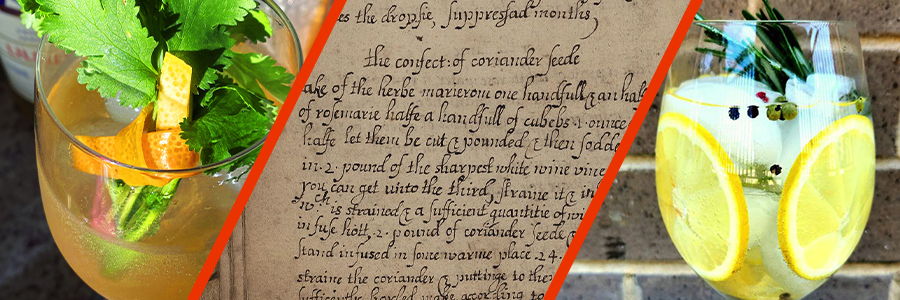 es the dropsie, suppressad months,
the confect: of coriander seede
ake of the herbe marierom one handfull & an halfe
of rosemarie halfe a handfull of cubebs .1. ounce
halfe let them be cut & pounded & then sodde
in .2. pound of the sharpest white wine vine
you can get unto the third, straine it & in
is strained & a sufficient quantitie of
infuse hott .2. pound of coriander seede
stand infused in some warme place .24.
straine the coriander & puttinge to the
sufficiente boyled make according to